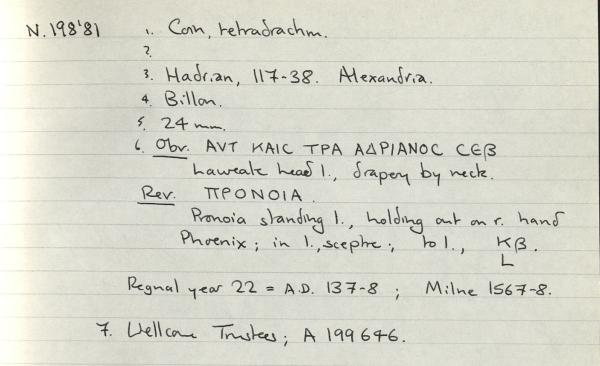 N.198'81 1. Coin, tetradrachm.
2.
3. Hadrian, 117-38. Alexandria.
4. Billon.
5. 24 mm.
6. Obv. ΑVΤ ΚΑΙC ΤΡΑ ΑΔΡΙΑΝΟC CЄβ
Laureate head l., drapery by neck.
Rev. ΠΡΟΝΟΙΑ.
Pronoia standing l., holding out on r. hand
Phoenix; in l., sceptre; to l., Κβ.
L
Regnal year 22 = A.D. 137-8; Milne 1567-8.
7. Wellcome Trustees; A 199646.